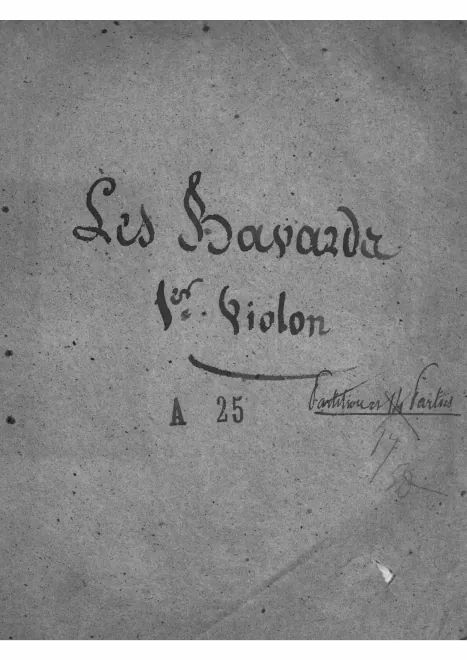 Les Bavards
1er. Violon
A 25
Partition et 14 Parties
17